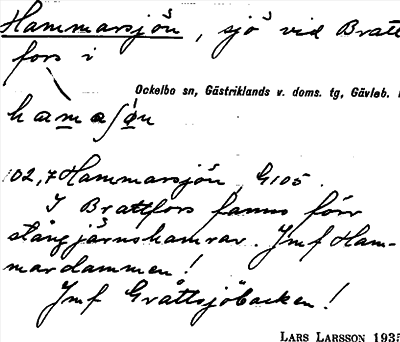 Hammarsjön, sjö vid Bratt
fors i
Ockelbo sn, Gästriklands v. doms. tg, Gävleb.
hamaʃøn
102,7 Hammarsjön G105.
I Brattfors fanns förr
stångjärnshamrar. Jmf Ham-
mardammen!
Jmf Gråttsjöbacken!
LARS LARSSON 1935